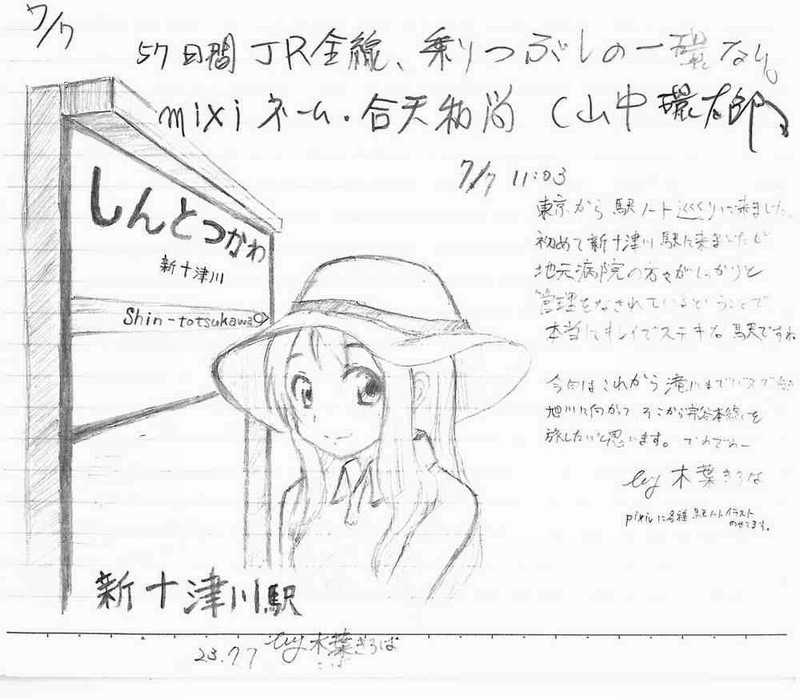 7/7
57日間 JR全線、乗りつぶしの一環なり。
mixiネーム・合天和尚 (山中環太郎)
しんとつかわ
新十津川
Shin-totsukawa
7/7 11:03
東京から駅ノート巡りに来ました。
初めて新十津川駅に来ましたが
地元病院の方々がしっかりと
管理をなされているということで
本当にキレイでステキな駅ですね
今日はこれから滝川までバスで
旭川に向かって そこから宗谷本線を
旅したいと思います。ではでは〜
by 木葉きろな
pixivに各種 駅ノートイラスト
のせてます。
新十津川駅
23.7.7 by 木葉